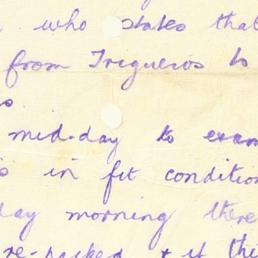 who states that
from Trigueros to
mid-day to exam
in fit condition
day morning there
re-packed & if this